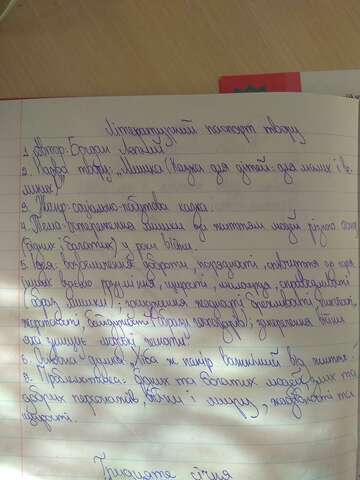 Літературний паспорт твору
1. Автор: Богдан Лепкий
2. Назва твору: „Мишка (Казка для дітей для малих і ве-
ликих"
3. Жанр: соціально-побутова казка.
4. Тема: спостереження мишки над життям людей різного
(бідних і багатих) у роки війни.
5. Ідея: возвеличення доброти, порядності, співчуття до
інших, вірної дружби, щирості, милосердя, справедливості
(образ мишки); засудження жадності,
жорстокості, байдужості (образи господарів); засудження війни
людські
6. Основна думка: Хіба ж папір важливіший від життя?
7. Проблематика: бідних та багатих людей, злих та
добрих персонажів, війни і миру, жадібності та
щирості.
Тридцяте січня